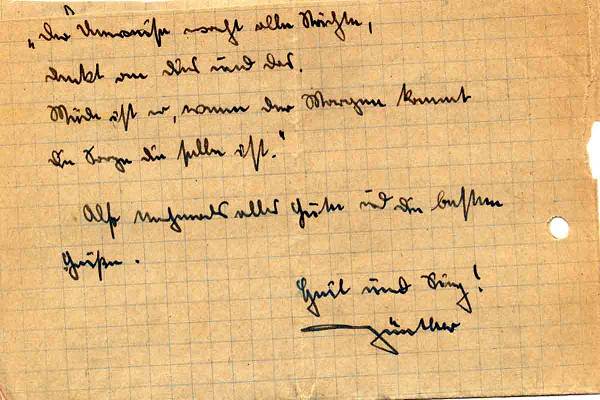 „Der Unweise wacht alle Nächte,
denkt an dies und das.
Müde ist er, wann der Morgen kommt
die Sorge die selbe ist.“
Also nochmals alles Gute und die besten
Grüße.
Heil und Sieg!
Günther